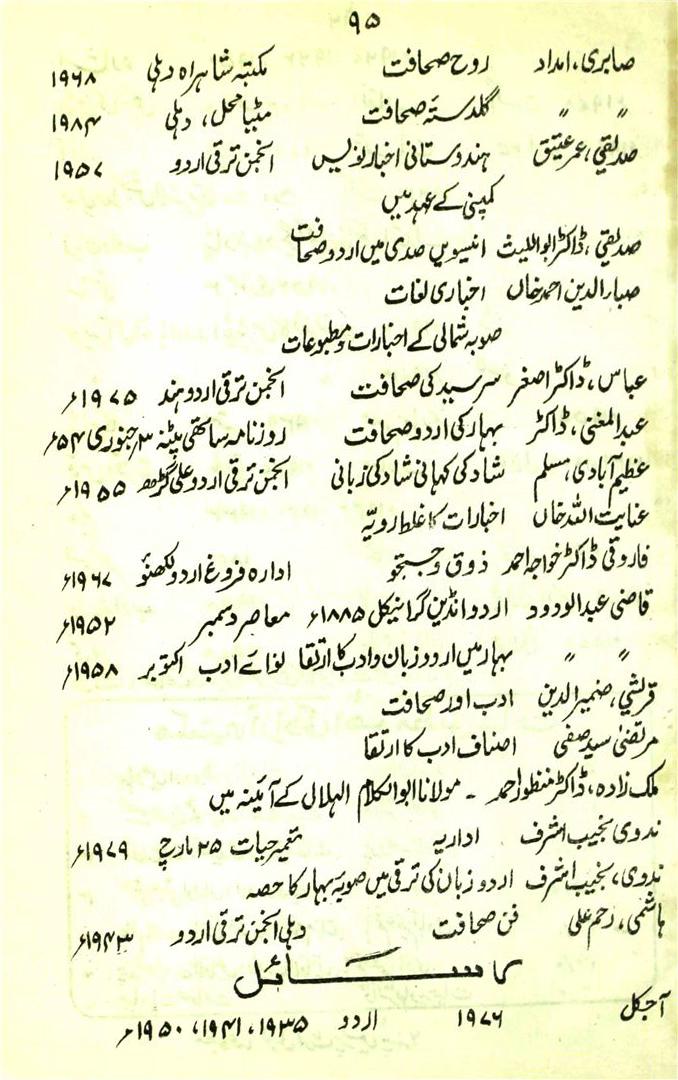 ۹۵
صابری، امداد روح صحافت مکتبہ شاہراہ دہلی ۱۹۶۸
〃 〃 گلدستۂ صحافت مٹیا محل، دہلی ۱۹۸۴
صدیقی، عمر عتیق ہندوستانی اخبار نویسی انجمن ترقی اردو ۱۹۵۷
کمپنی کے عہد میں
صدیقی، ڈاکٹر ابواللیث انیسویں صدی میں اردو صحافت
صبار الدین احمد خاں اخباری لغات
صوبہ شمالی کے اخبارات و مطبوعات
عباس، ڈاکٹر اصغر سرسید کی صحافت انجمن ترقی اردو ہند ۱۹۷۵ء
عبدالمغنی، ڈاکٹر بہار کی اردو صحافت روزنامہ ساتھی پٹنہ ۳؍جنوری ۵۴ء
عظیم آبادی، مسلم شاد کی کہانی شاد کی زبانی انجمن ترقی اردو علی گڑھ ۱۹۵۵ء
عنایت اللہ خاں اخبارات کا غلط رویّہ
فاروقی ڈاکٹر خواجہ احمد ذوق و جستجو ادارہ فروغ اردو لکھنؤ ۱۹۶۷ء
قاضی عبدالودود اردو انڈین کرانیکل ۱۸۸۵ء معاصر دسمبر ۱۹۵۲ء
〃 〃 بہار میں اردو زبان و ادب کا ارتقا نوائے ادب اکتوبر ۱۹۵۸ء
قریشی، ضمیر الدین ادب اور صحافت
مرتضیٰ سید صفی اصناف ادب کا ارتقا
ملک زادہ، ڈاکٹر منظور احمد ۔ مولانا ابوالکلام الہلال کے آئینہ میں
ندوی نجیب اشرف اداریہ تعمیر حیات ۲۵ مارچ ۱۹۷۹ء
ندوی، نجیب اشرف اردو زبان کی ترقی میں صوبۂ بہار کا حصہ
ہاشمی، رحم علی فن صحافت دہلی انجمن ترقی اردو ۱۹۴۳ء
رسائل
آجکل ۱۹۷۶ اردو ۱۹۳۵، ۱۹۴۱، ۱۹۵۰ء